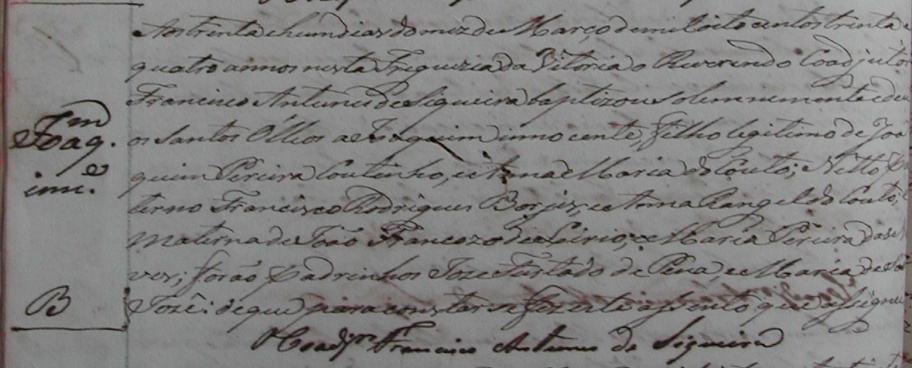 Aos trinta e hum dias do mez de Março de mil oito centos trinta e
quatro annos nesta Freguezia da Vitoria o Reverendo Coadjutor
Francisco Antunes de Siqueira baptizou solemnemente e deu
Joaqm.
os Santos Olleos a Joaquim innocente, filho legitimo de Joa
quim Pereira Coutinho, e Anna Maria do Couto; Netto Pa
inne.
terno Francisco Rodrigues Borges, e Anna Rangel do Couto,
Materna de João Francozo de Lirio, e Maria Pereira das Ne
ves; forão Padrinhos Joze Furtado de e Maria de São
B
José: e que para constar se fez este assento que assignei
O Coadjor. Francisco Antunes de Siqueira